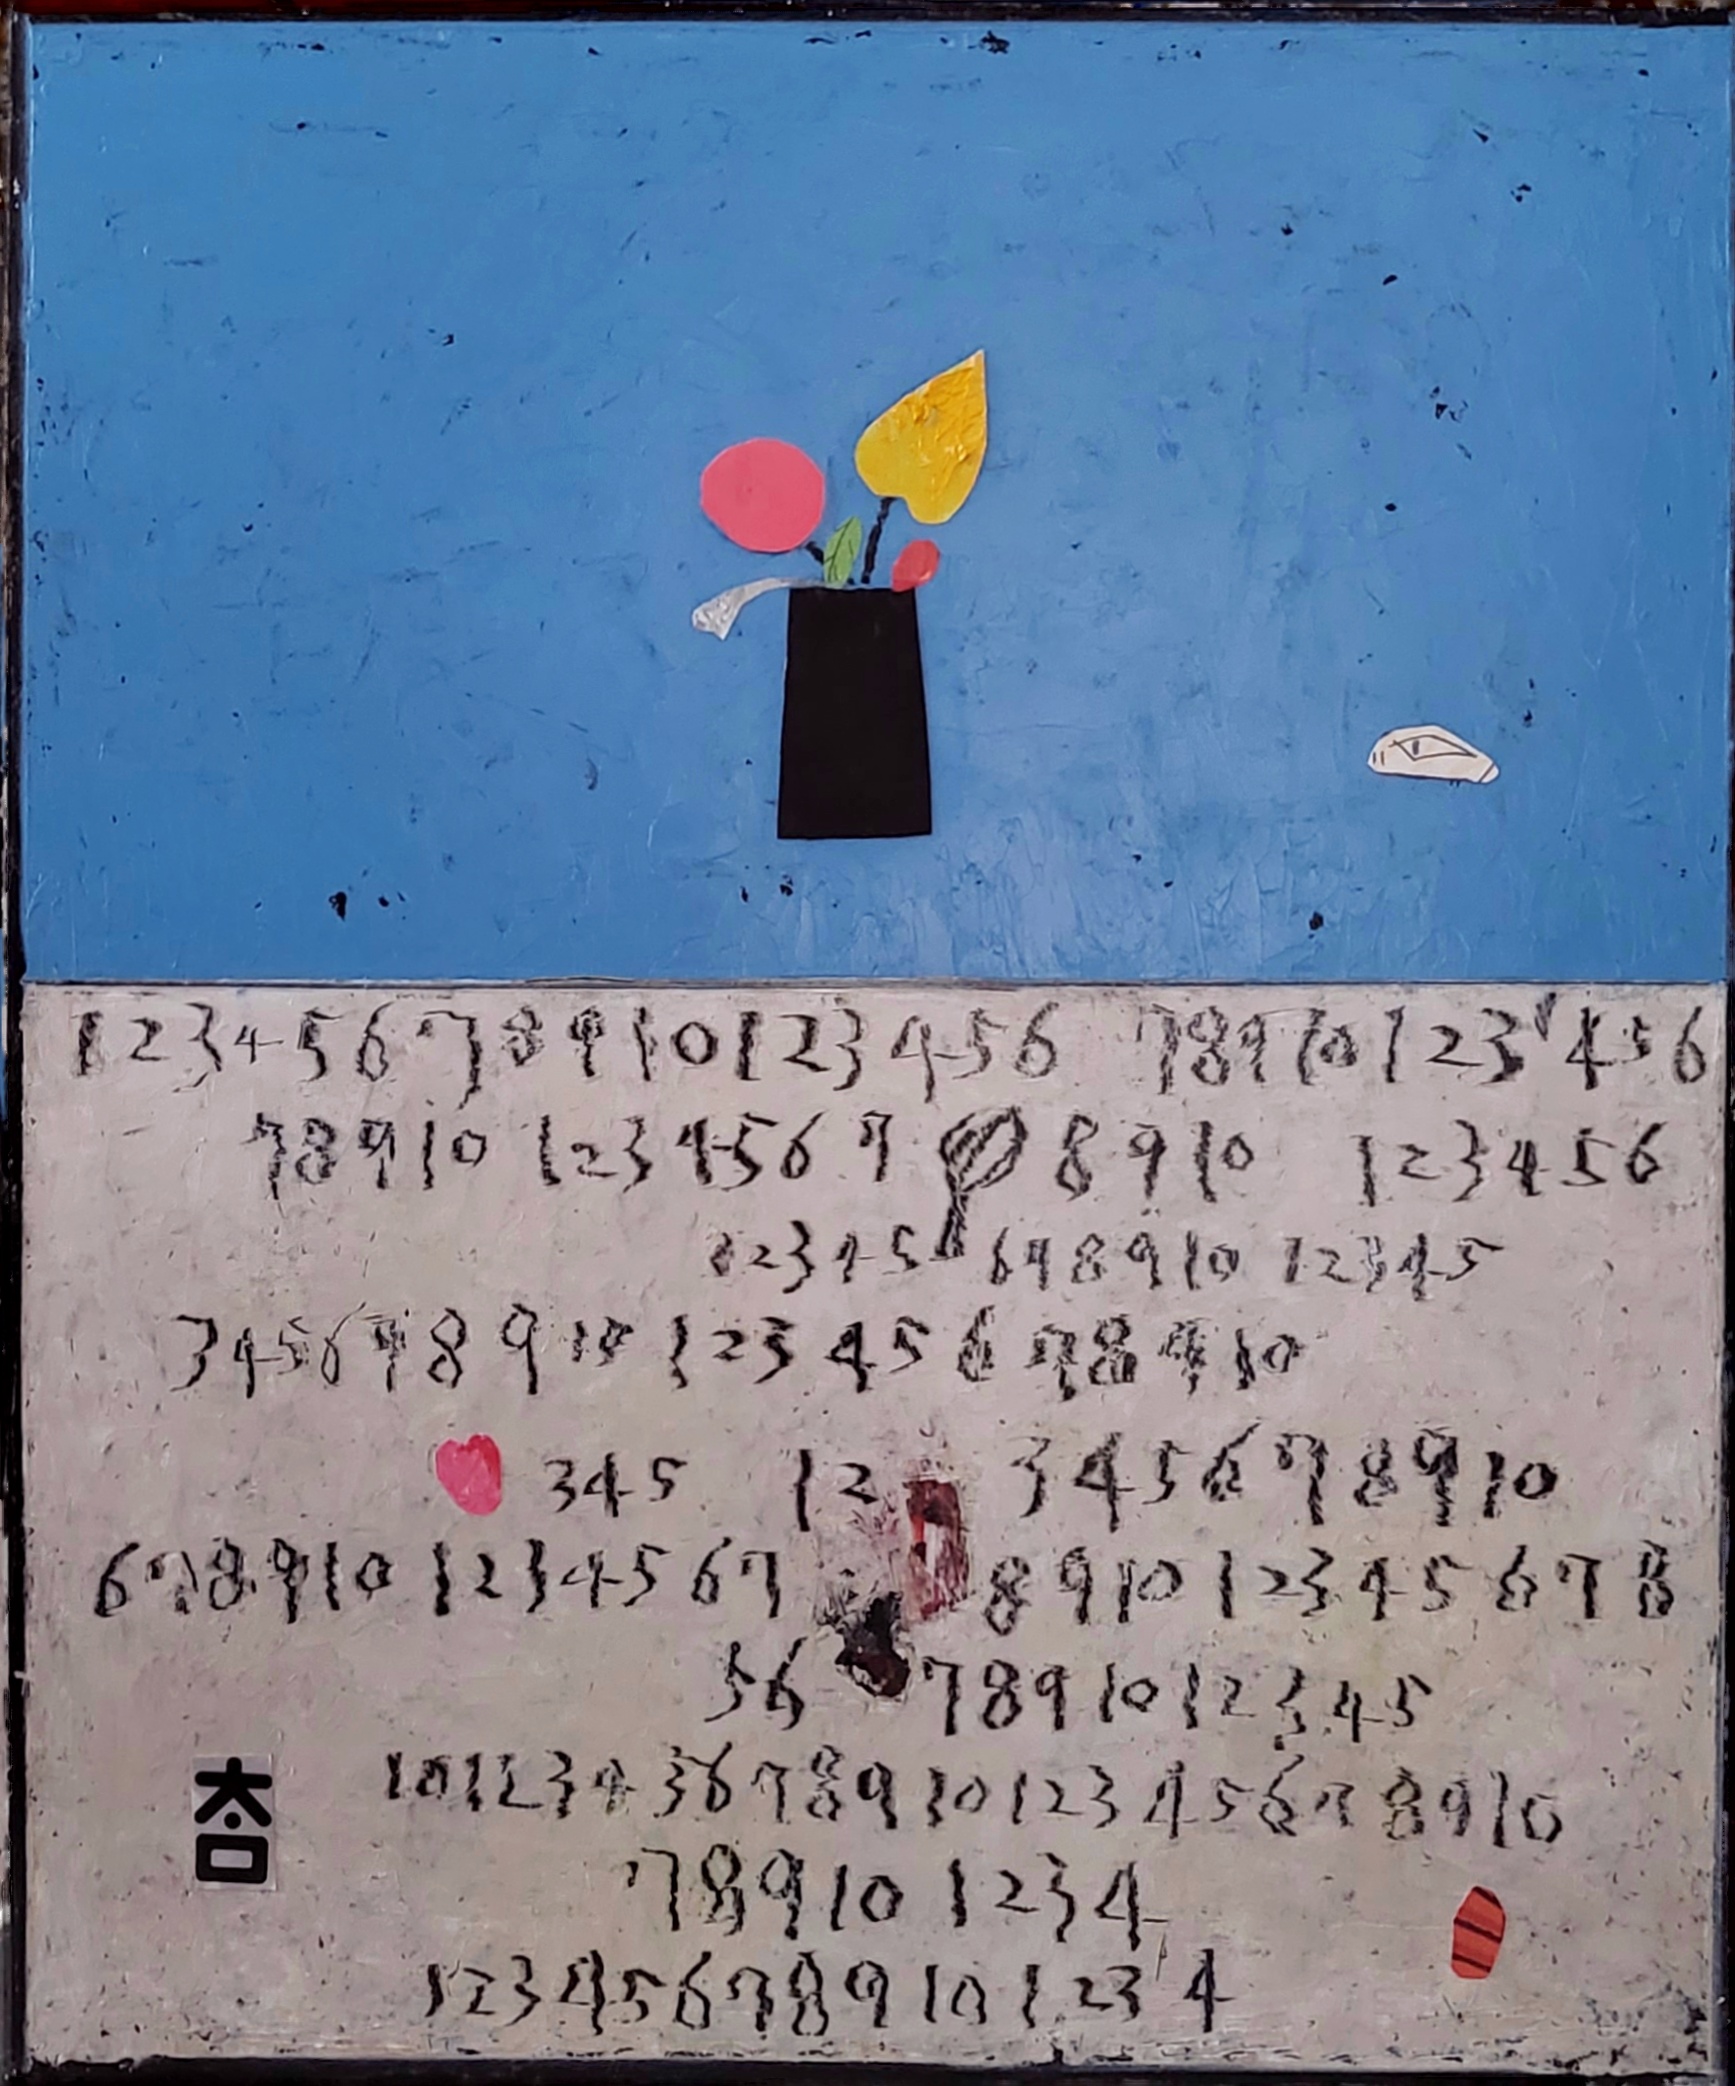 1 2 3 4 5 6 7 8 9 10 1 2 3 4 5 6 7 8 9 10 1 2 3 4 5 6
7 8 9 10 1 2 3 4 5 6 7 8 9 10 1 2 3 4 5 6
1 2 3 4 5 6 7 8 9 10 1 2 3 4 5
3 4 5 6 7 8 9 10 1 2 3 4 5 6 7 8 9 10
3 4 5 1 2 3 4 5 6 7 8 9 10
6 7 8 9 10 1 2 3 4 5 6 7 8 9 10 1 2 3 4 5 6 7 8
5 6 7 8 9 10 1 2 3 4 5
10 1 2 3 4 3 6 7 8 9 10 1 2 3 4 5 6 7 8 9 10
참
7 8 9 10 1 2 3 4
1 2 3 4 5 6 7 8 9 10 1 2 3 4